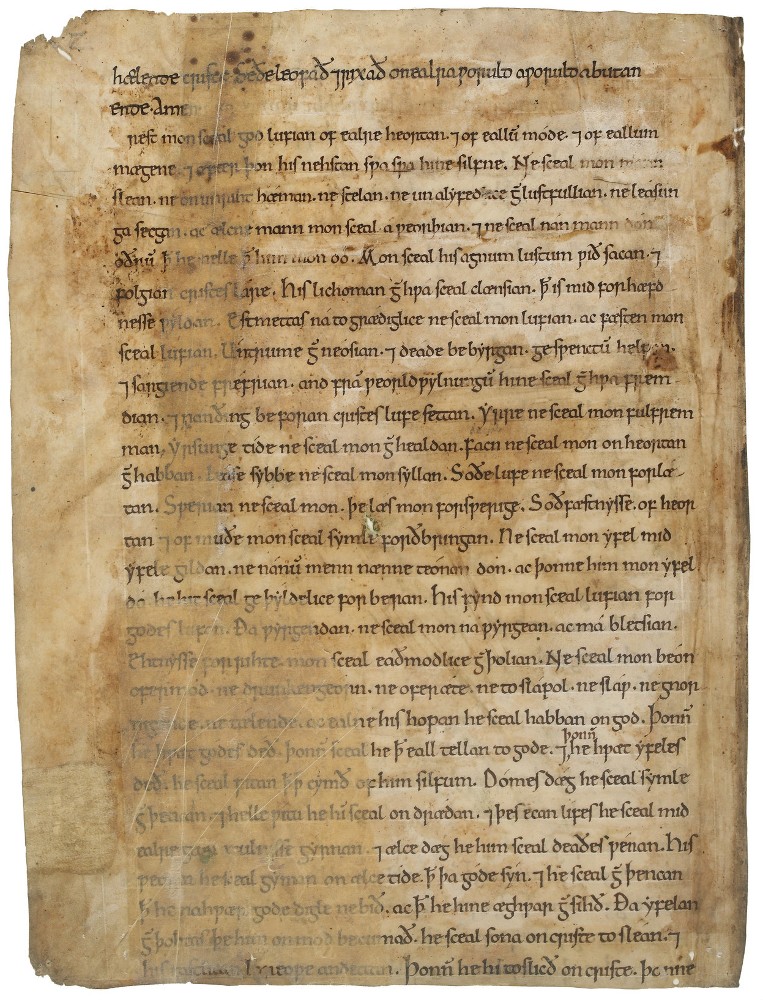 hælende criste. Se ðe leofað ⁊ rixað on ealra worulda woruld abutan
ende. Amen
rest mon sceal god lufian of ealre heortan. ⁊ of eallū mode. ⁊ of eallum
mægene. ⁊ æfter þon his nehstan swa swa hine silfne. Ne sceal mon mann
slean. ne hæman. ne stelan. ne unalyfedlice g̅lustfullian. ne leasun
ga secgan. ac ælcne mann mon sceal a weorþian. ⁊ ne sceal nan mann don
oðrū þ̅ he nelle þ̅ him mon do. Mon sceal his agnum lustum wið sacan. ⁊
folgian cristes lare. His lichoman g̅hwa sceal clænsian. þ̅ is mid forhæfd
nesse wyldan. Estmettas na to grædiglice ne sceal mon lufian. ac fæsten mon
sceal lufian. Untrume g̅neosian. ⁊ deade bebyrgan. geswenctū helpan.
⁊ sargiende frefrian. and frā weorldwylnungū hine sceal g̅hwa frem
dian. ⁊ nan ðing beforan cristes lufe settan. Yrre ne sceal mon fulfrem
man. yrsunge tide ne sceal mon g̅healdan. Facn ne sceal mon on heortan
g̅habban. Lease sybbe ne sceal mon syllan. Soðe lufe ne sceal mon forlæ-
tan. Swerian ne sceal mon. þe læs mon forswerige. Soðfæstnysse. of heor
tan ⁊ of muðe mon sceal symle forðbringan. Ne sceal mon yfel mid
yfele gildan. ne nanū menn nænne teonan don. ac þonne him mon yfel
do. he hit sceal geþyldelice forberan. His fynd mon sceal lufian for
godes lufan. Ða wyrgendan. ne sceal mon na wyrgean. ac má bletsian.
Ehtnysse for rihte. mon sceal eaðmodlice g̅þolian. Ne sceal mon beón
ofermod. ne druncengeorn. ne oferæte. ne to slapol. ne slaw. ne gnor
nigende. ne tælende. ac ealne his hopan he sceal habban on god. Þonn̅
he hwæt godes deð. þonn̅ sceal he þ̅ eall tellan to gode. ⁊ þonn̅ he hwæt yfeles
deð. he sceal witan þ̅ þ̅ cymð of him silfum. Domes dæg he sceal symle
g̅þencan. ⁊ helle witu he hī sceal ondrædan. ⁊ þes ecan lifes he sceal mid
ealre gyrnan. ⁊ ælce dæg he him sceal deaðes wenan. His
weorc he sceal gyman on ælce tide. þ̅ þa gode syn. ⁊ he sceal g̅þencan
þ̅ he nahwær gode digle ne bið. ac þ̅ he hine æghwar g̅sihð. Ða yfelan
g̅þohtas þe him on mod becumað. he sceal sona on criste to slean. ⁊
his lareowe andettan. Þonn̅ he hī to slicð on criste. þonne